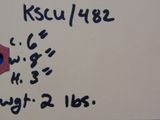 KSCU/482
L. 6"
W. 8"
H. 3"
wgt. 2 lbs.